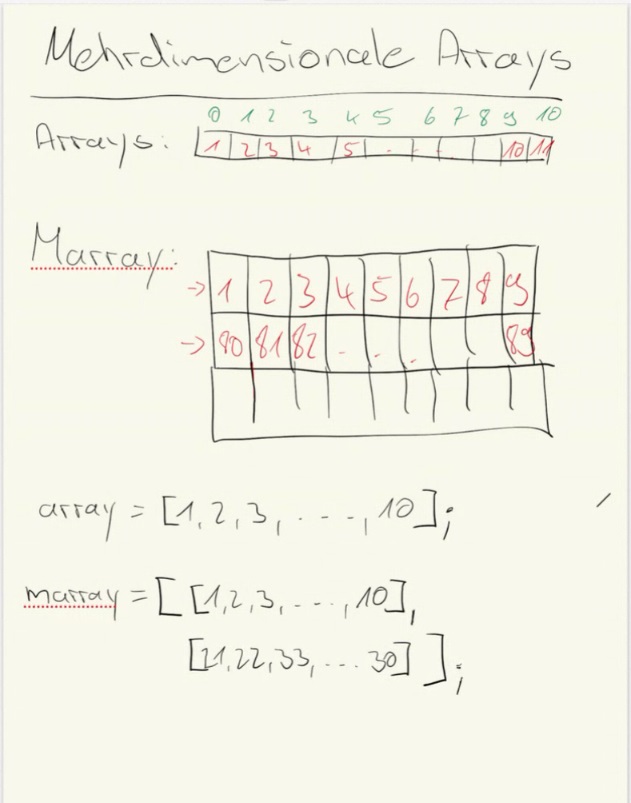 Mehrdimensionale Arrays
0 1 2 3 4 5 6 7 8 9 10
Arrays: 1 2 3 4 5 . . . 10 11
Marray:
→ 1 2 3 4 5 6 7 8 9
→ 80 81 82 . . . 89
array = [1, 2, 3, ----, 10];
marray = [ [1,2,3,...,10],
[21,22,33,...30] ];